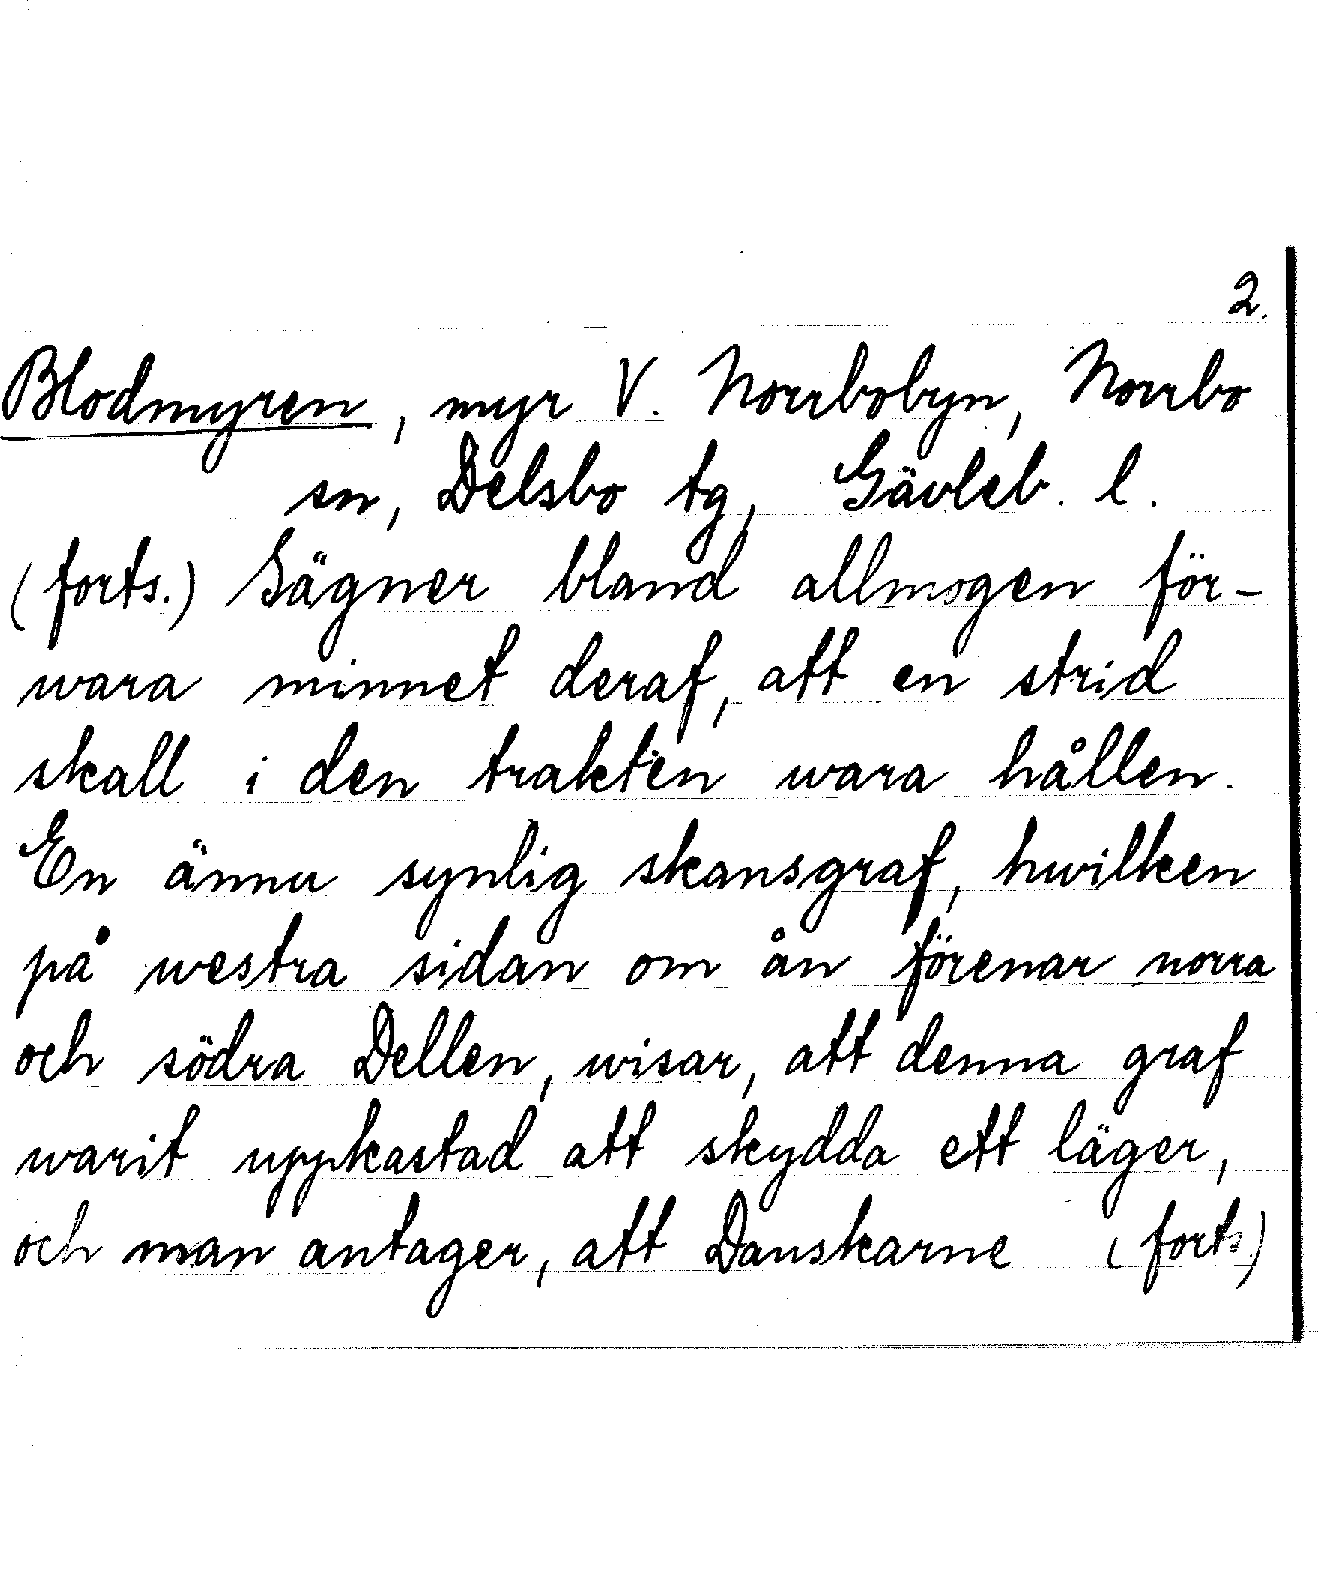 2.
Blodmyren, myr V. Norrbobyn, Norrbo
sn, Delsbo tg, Gävleb. l.
(forts.) Sägner bland allmogen för-
wara minnet deraf, att en strid
skall i den trakten wara hållen.
En ännu synlig skansgraf, hwilken
på westra sidan om ån förenar norra
och södra Dellen, wisar, att denna graf
warit uppkastad att skydda ett läger,
och man antager, att Danskarne (forts.)